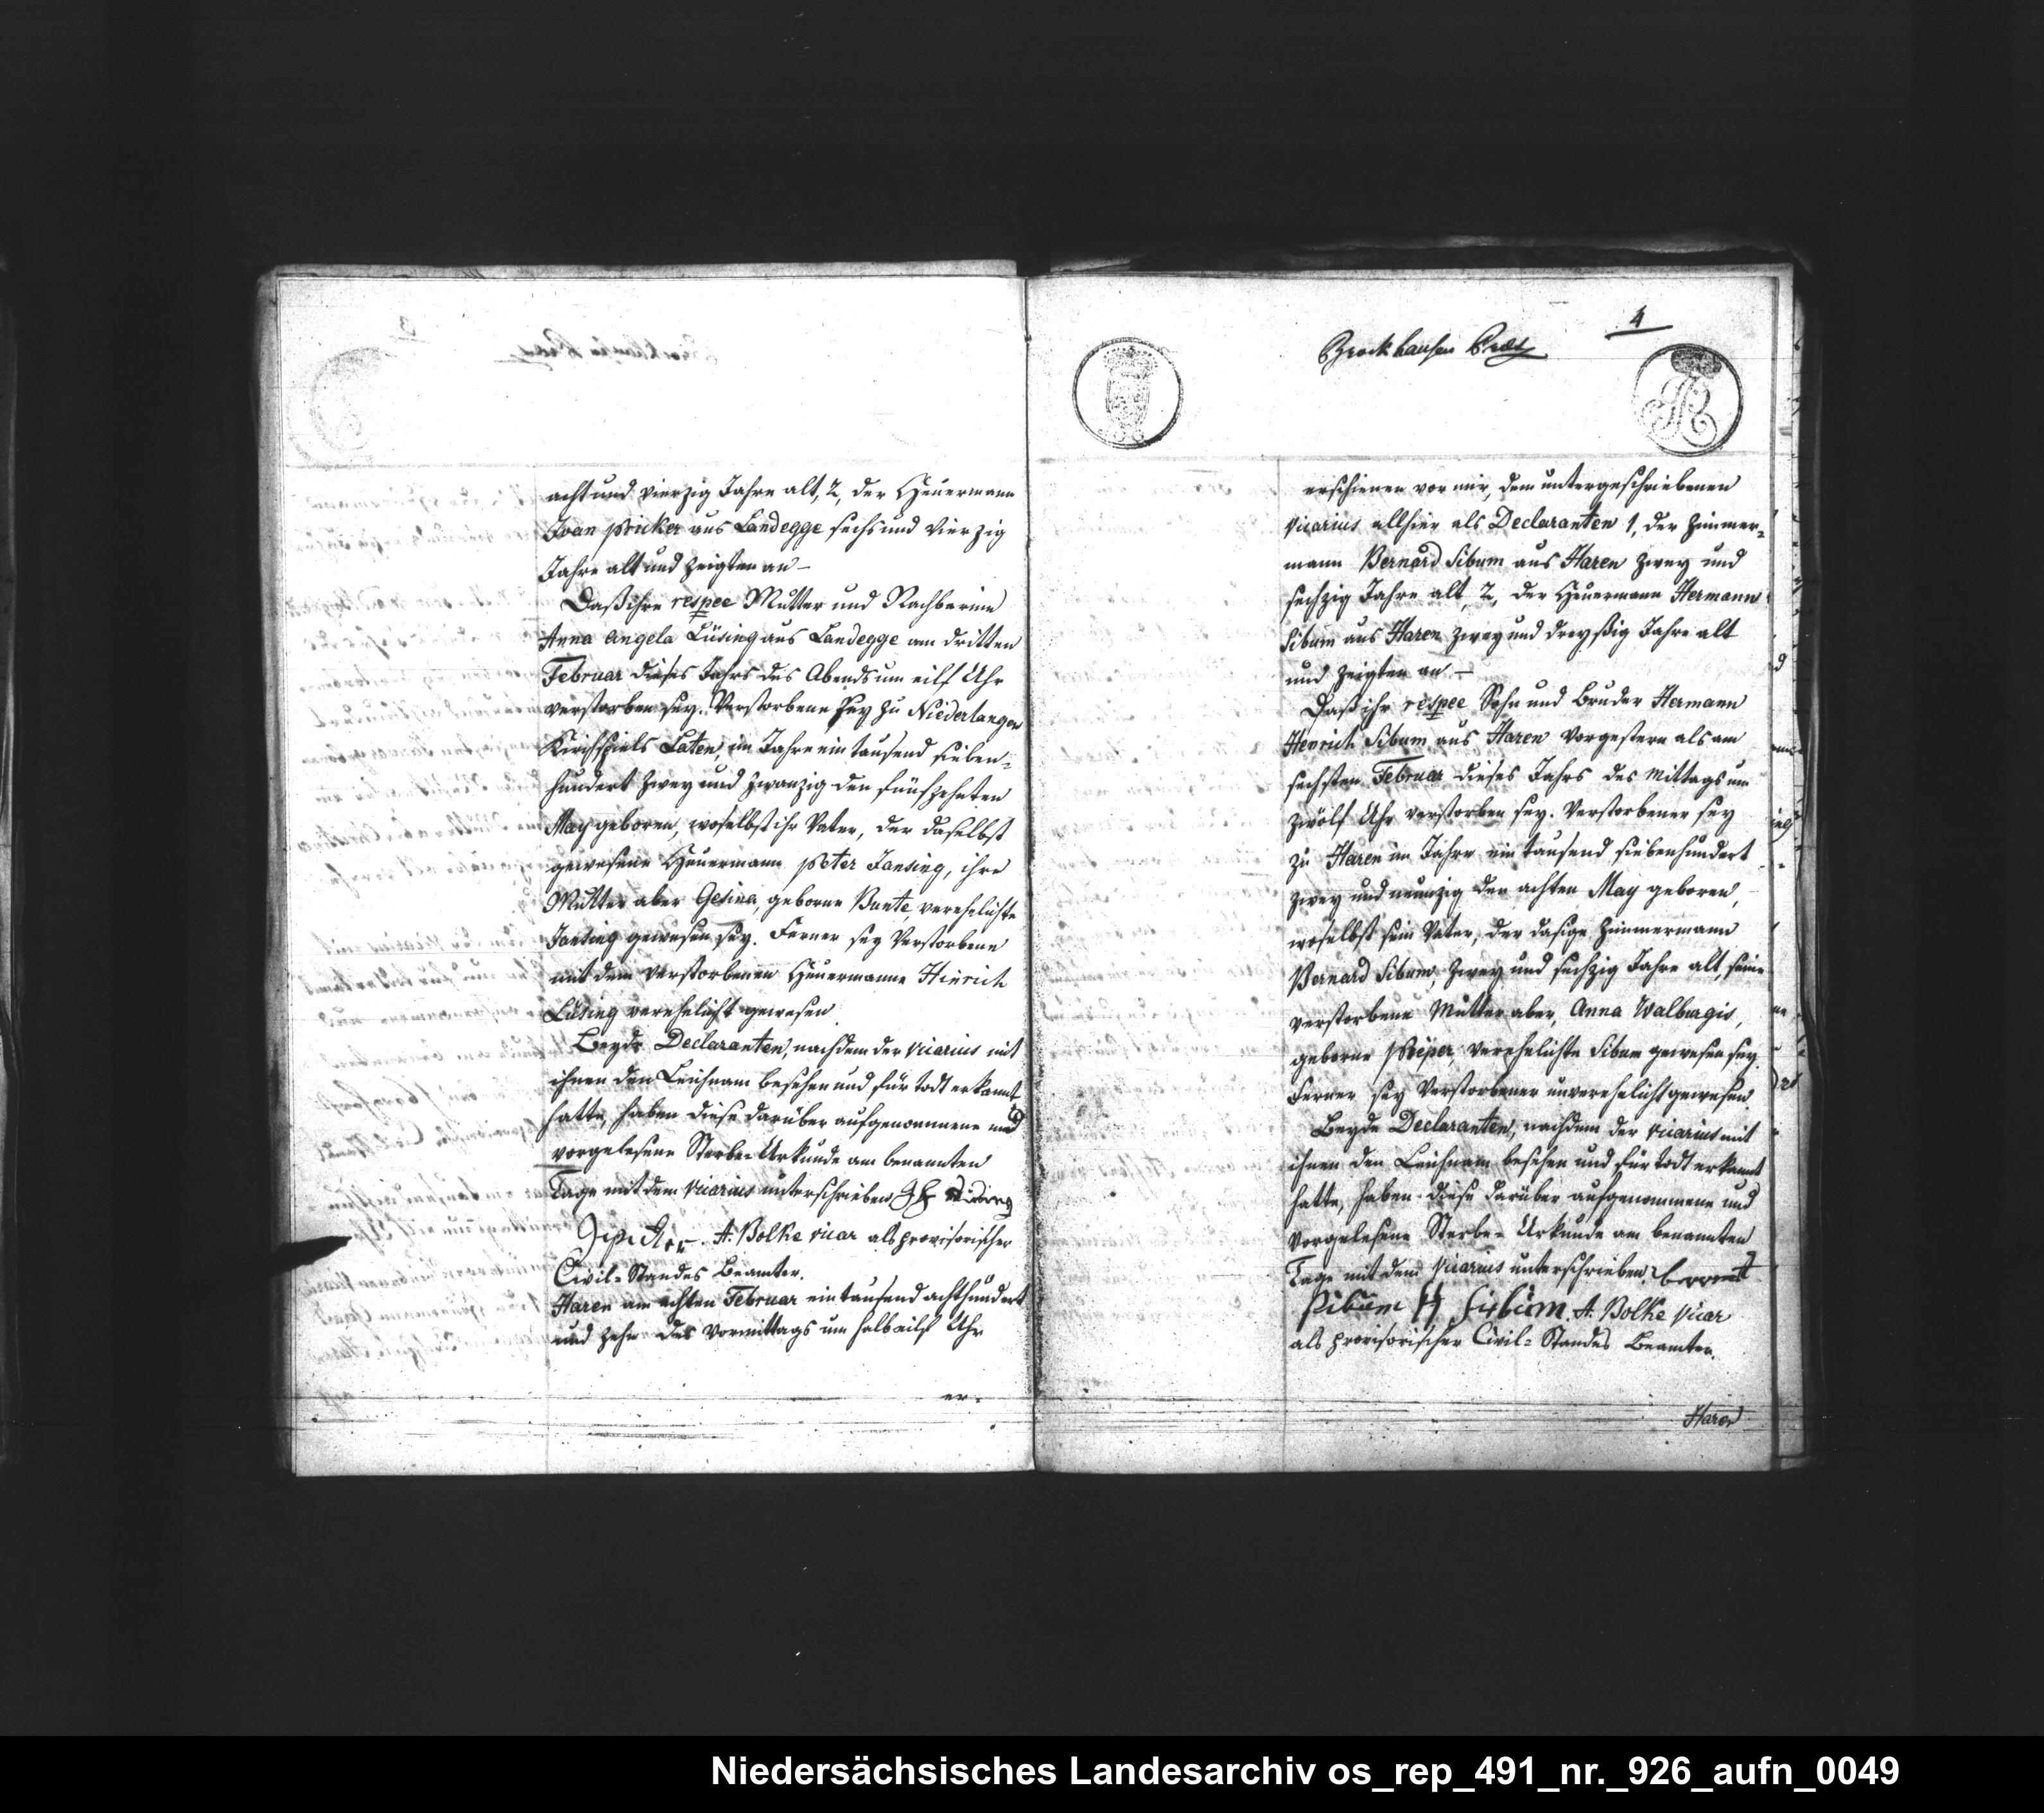 acht und vierzig Jahre alt, 2, der Heuermann
Joan Pricker aus Landegge sechs und vierzig
Jahre alt und zeigten an –
Daß ihre respee Mutter und Nachbarinn
Anna Angela Lüsing aus Landegge am dritten
Februar dieses Jahrs des Abends um eilf Uhr
verstorben sey. Verstorbene sey zu Niederlangen
Kirchspiels Laten, im Jahre ein tausend sieben=
hundert zwey und zwanzig den fünfzehnten
May geboren, woselbst ihr Vater, der daselbst
gewesene Heuermann Peter Jansing, ihre
Mutter aber Gesina, geborne Bunte, verehelichte
Jansing gewesen sey. Ferner sey Verstorbene
mit dem verstorbenen Heuermanne Hinrich
Lüsing verehelicht gewesen
Beyde Declaranten, nachdem der Vicarius mit
ihnen den Leichnam besehen und für todt erkannt
hatte, haben diese darüber aufgenommene und
vorgelesene Sterbe-Urkunde am benannten
Tage mit dem Vicarius unterschrieben
A. Bolke vicar als provisorischer
Civil=Standes Beamter.
Haren am achten Februar ein tausend achthundert
und zehn des Vormittags um halb eilf Uhr
er=
4
Brockhausen
erschienen vor mir, dem untergeschriebenen
Vicarius allhier als Declaranten 1, der Zimmer=
mann Bernard Sibum aus Haren zwey und
sechzig Jahre alt, 2, der Heuermann Hermann
Sibum aus Haren zwey und dreyßig Jahre alt
und zeigten an –
Daß ihr respee Sohn und Bruder Hermann
Henrich Sibum aus Haren vorgestern als am
sechsten Februar dieses Jahrs des Mittags um
zwölf Uhr verstorben sey. Verstorbener sey
zu Haren im Jahre ein tausend siebenhundert
zwey und neunzig den achten May geboren,
woselbst sein Vater, der dasige Zimmermann
Bernard Sibum, zwey und sechzig Jahre alt, seine
verstorbene Mutter aber, Anna Walburgis,
geborne Pieper, verehelichte Sibum gewesen sey.
Ferner sey Verstorbener unverehelicht gewesen.
Beyde Declaranten, nachdem der Vicarius mit
ihnen den Leichnam besehen und für todt erkannt
hatte, haben diese darüber aufgenommene und
vorgelesene Sterbe= Urkunde am benannten
Tage mit dem Vicarius unterschrieben. bernnt
Sibum H Sibum. A. Bolke Vicar
als provisorischer Civil= Standes Beamter.
Haren
Niedersächsisches Landesarchiv os_rep_491_nr._926_aufn_0049